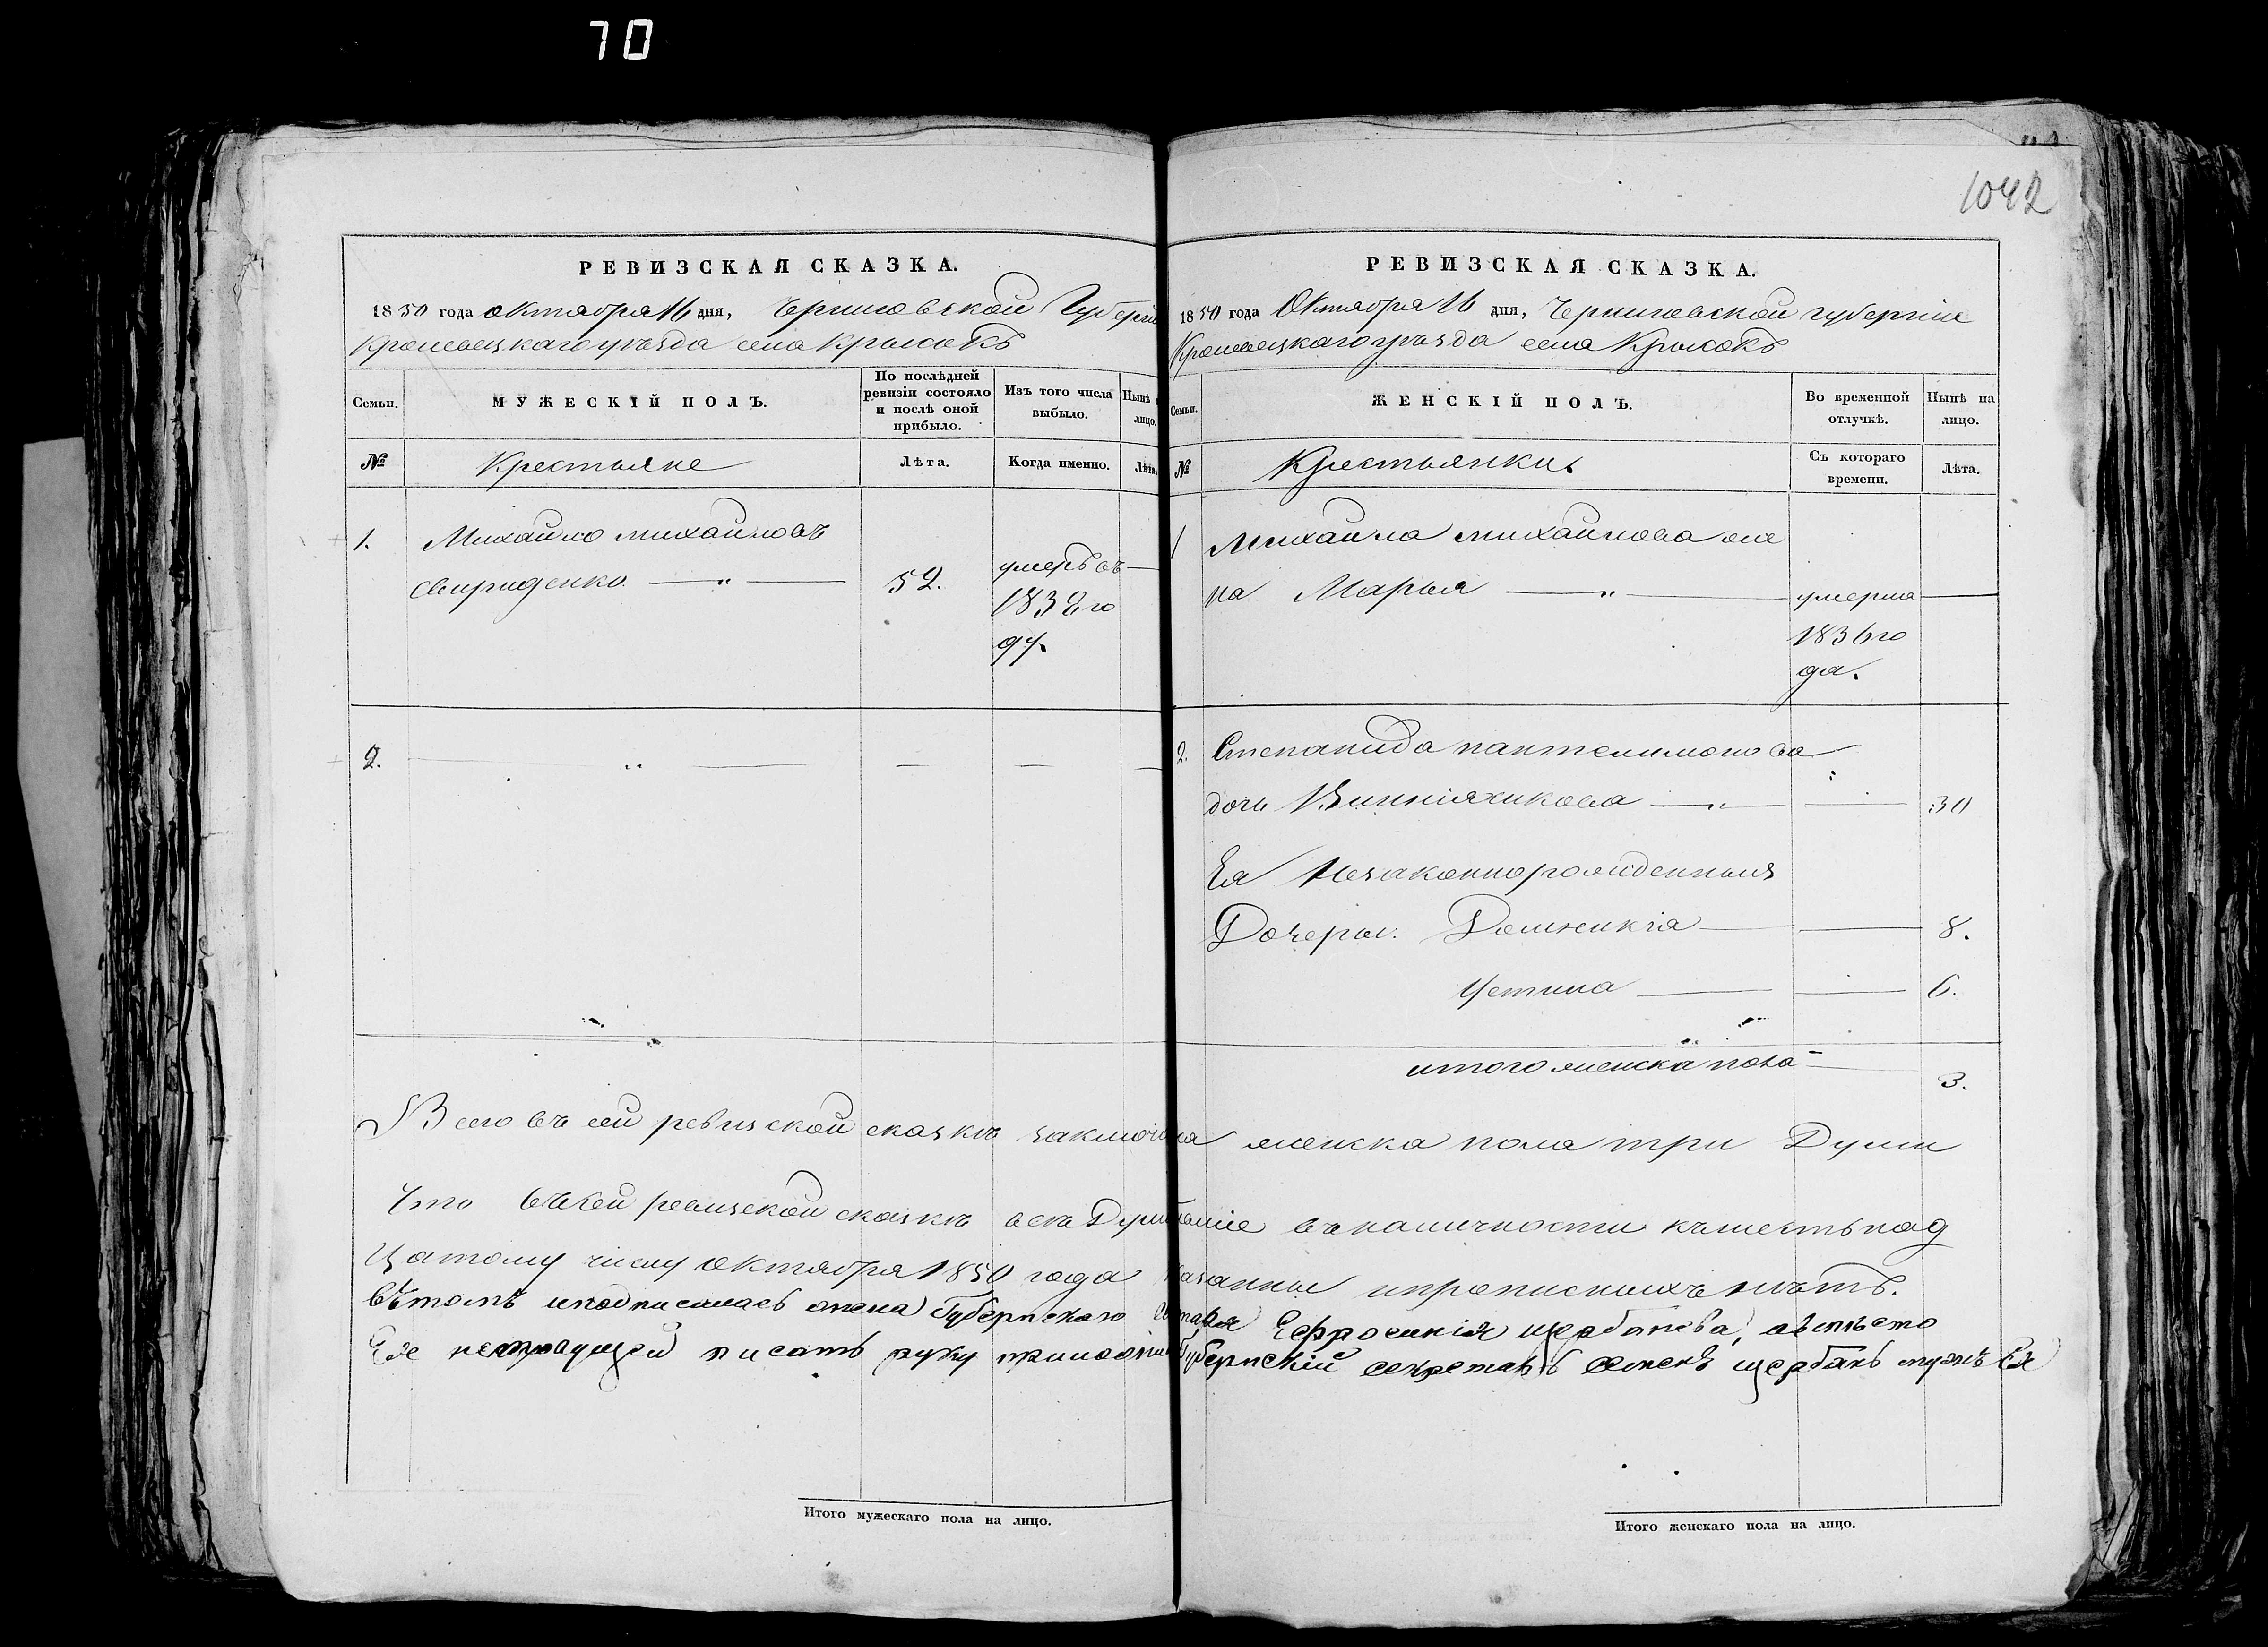 70
1042
РЕВИЗСКАЯ СКАЗКА.
1850 года Октября 16 дня, Черниговской Губерни
Кролевецкаго уезда села Крысокъ
Семьи.
МУЖЕСКІЙ ПОЛЪ.
По послѣдней ревизіи состояло и послѣ оной прибыло.
Изъ того числа выбыло.
Нынѣ лицо.
№
Крестьяне
Лѣта.
Когда именно.
Лѣта.
1. Михайло михайловъ
Свириденко 52.
умеръ въ
183 го
ду.
2.
РЕВИЗСКАЯ СКАЗКА.
1850 года Октября 16 дня, Черниговской губерніи
Кролевецкаго уезда села Крысокъ
Семьи.
ЖЕНСКІЙ ПОЛЪ.
Во временной отлучкѣ.
Нынѣ на лицо.
№
Крестьянки
Съ котораго времени.
Лѣта.
1 Михаила михайлова же
на Марья
умерла
1836 го
да.
2. Степанида пантелимонова
дочь 30
Ея Незаконнорожденныя
Дочеры. Домникія 8.
Устина 6.
итого женска пола 3.
Всего въ сей ревизской сказкѣ заключина женска пола три Души
Что въ сей ревизской сказкѣ всѣ Души въ наличности къ шестьнад
цатому числу октября 1850 года и прописныхъ нѣтъ.
вѣтомъ иподписалась жена Губернскаго Ефросинія Щербакова, а вмѣсто
Ее писать руку Губернскій секретарь Семенъ щербакъ мужъ Ея
Итого мужескаго пола на лицо.
Итого женскаго пола на лицо.